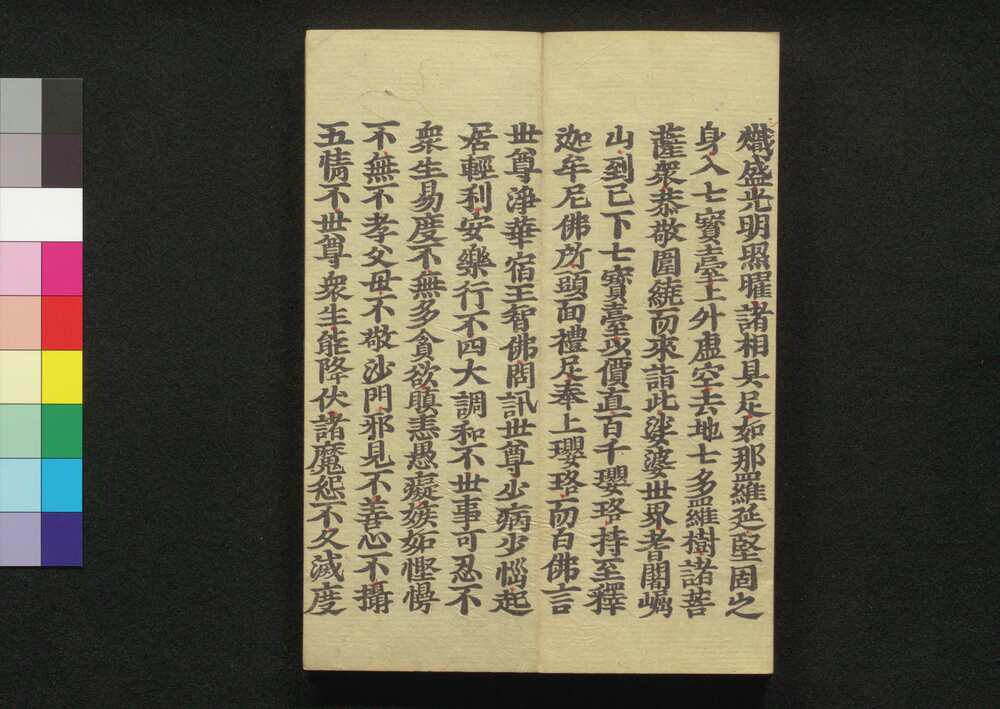 熾盛光明照曜諸相具足如那羅延堅固之
身入七寶臺上外虛空去地七多羅樹諸菩
薩衆恭敬圍繞而來詣此娑婆世界耆闍崛
山到已下七寶臺以價直百千瓔珞持至釋
迦牟尼佛所頭面禮足奉上瓔珞而白佛言
世尊淨華宿王智佛問訊世尊少病少惱起
居輕利安樂行不四大調和不世事可忍不
衆生易度不無多貪欲瞋恚愚癡嫉妬慳慢
不無不孝父母不敬沙門邪見不善心不攝
五情不世尊衆生能降伏諸魔怨不久滅度